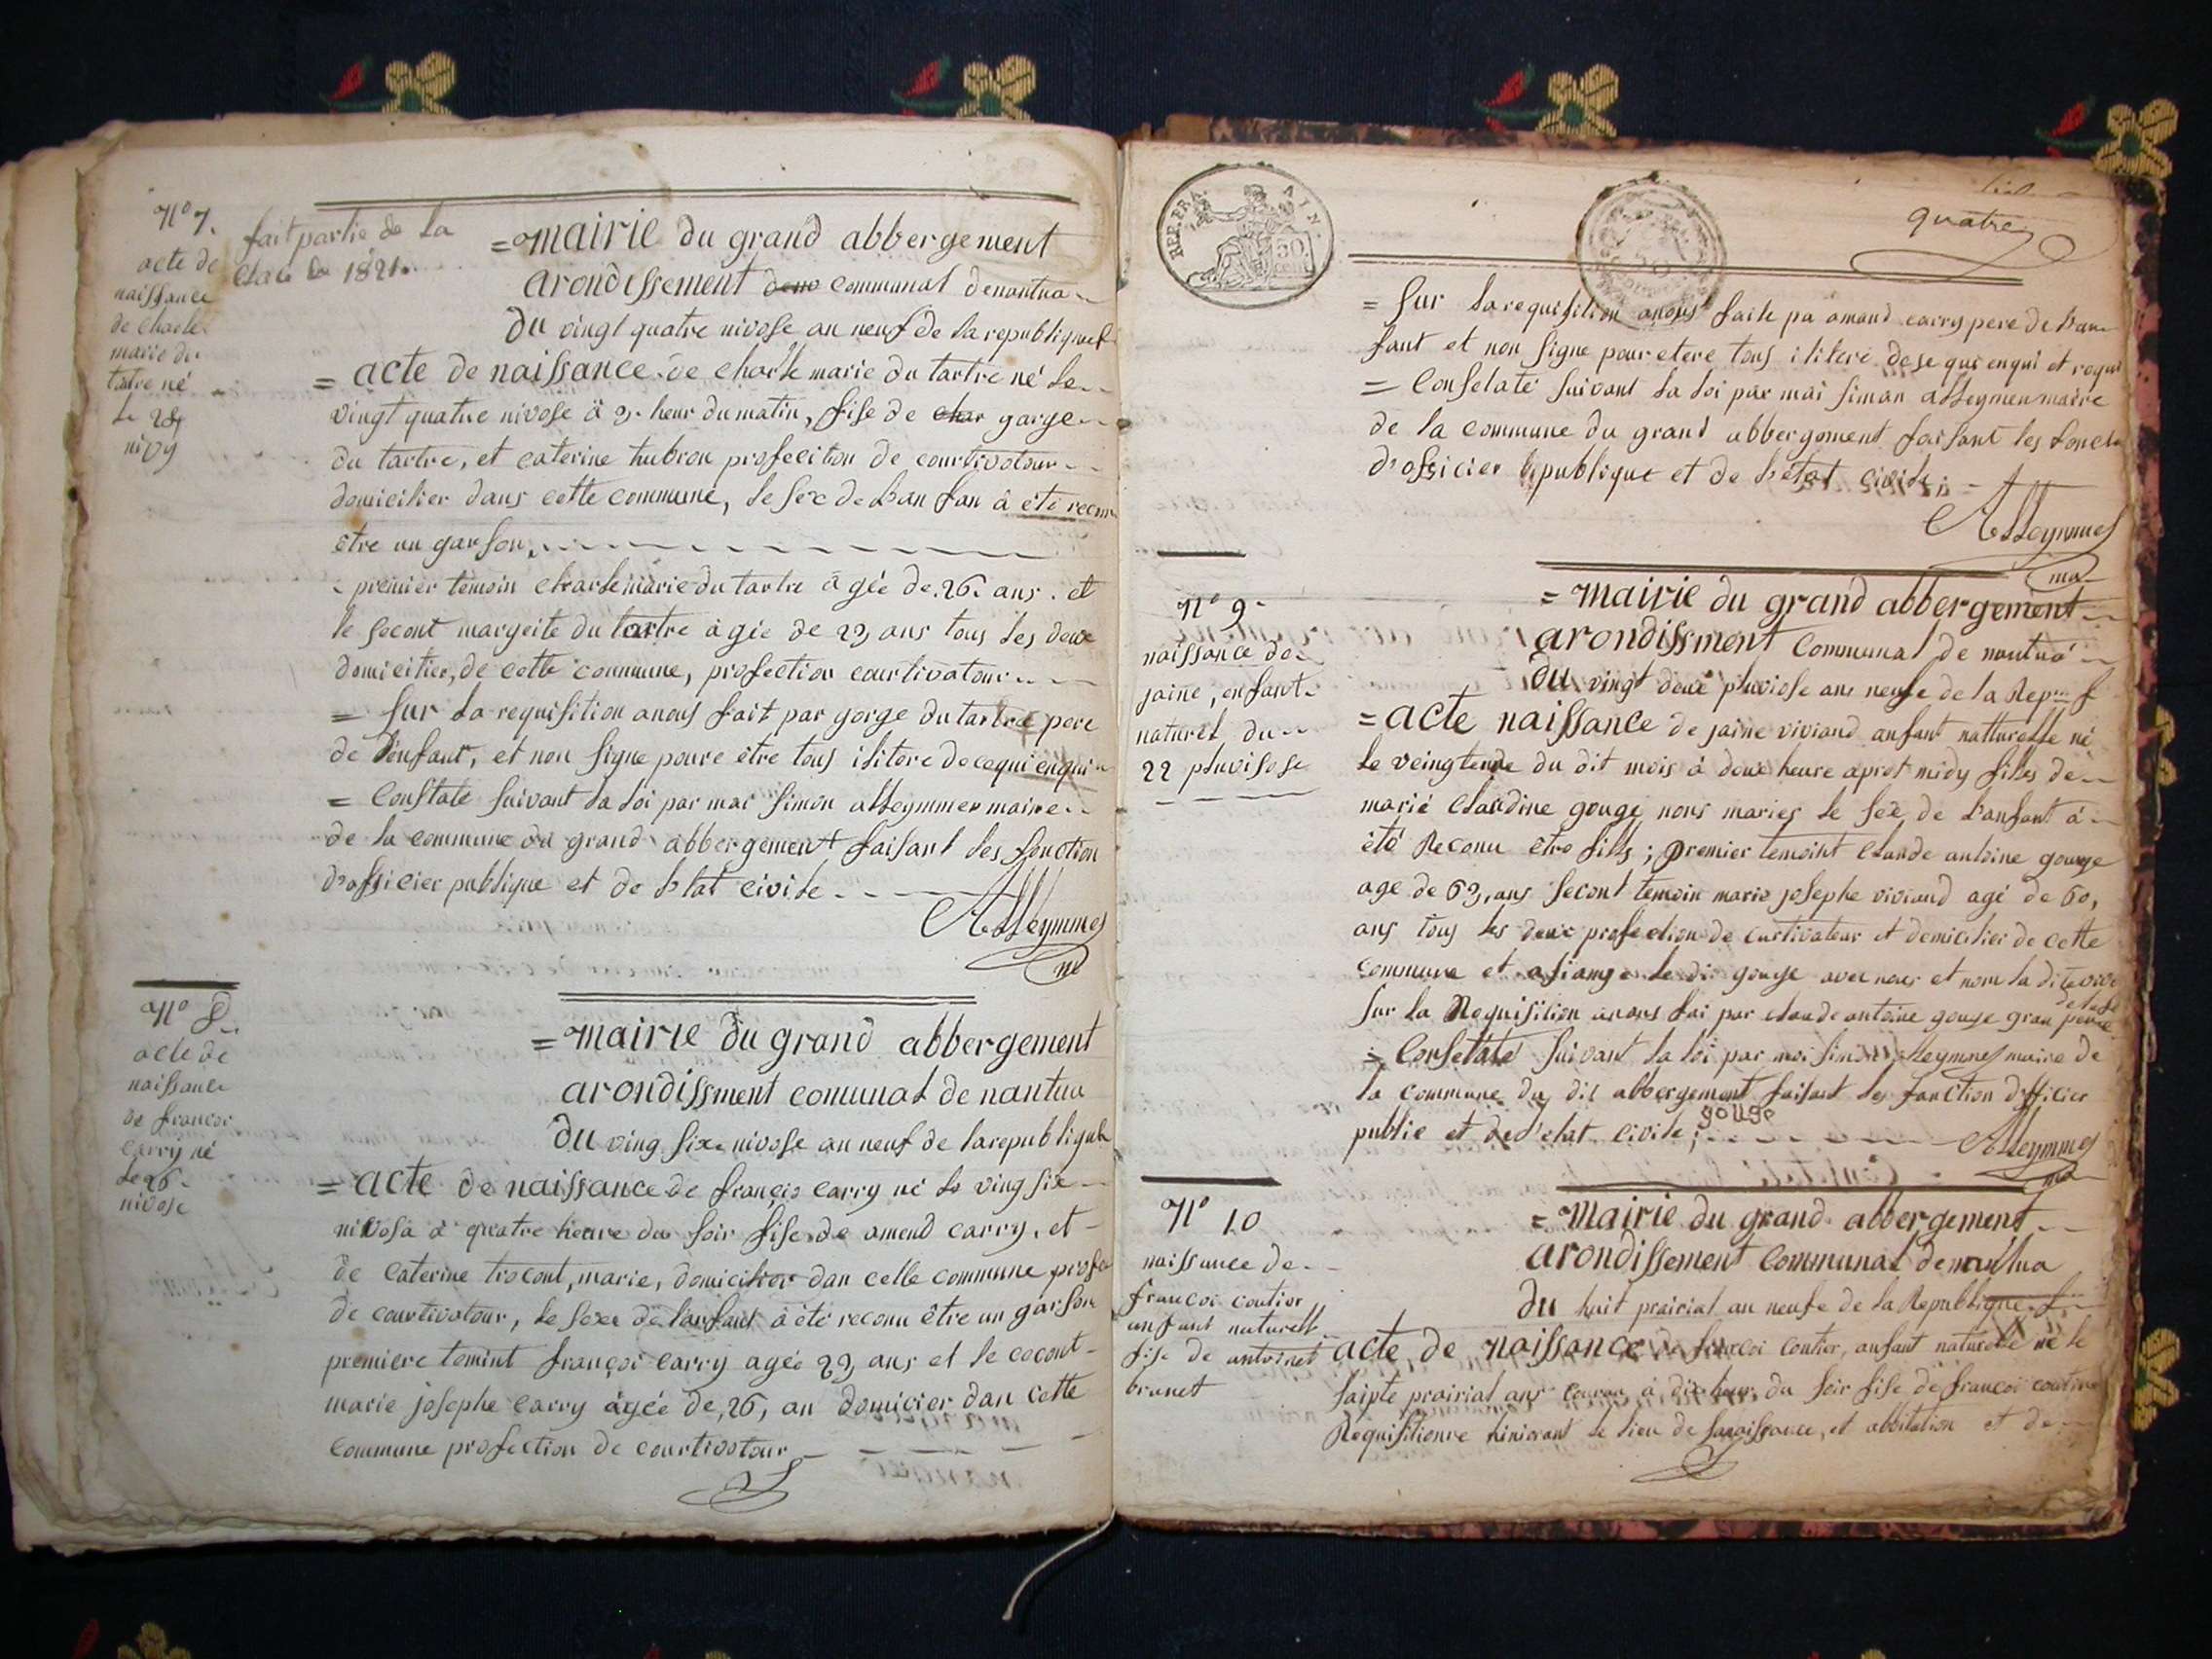 N° 7.
acte de
naissance
de Charle
marie du
tartre né
le 24
nivos
fait partie de la
Classe de 1821.
= mairie du grand abbergement
arondissement communal denantua
Du vingt quatre nivose an neuf de la republique f
= acte de naissance de charle marie du tartre né le
vingt quatre nivose à 3. heur du matin, fise de char gorge
du tartre, et caterine tubron profecition de courtivotour
domicilier dans cette commune, le sex de l'an fan à été reconu
être un garson,
premier temoin charle marie du tartre âgée de 26. ans. et
le secont margeite du tartre âgée de 23 ans tous les deux
domicilier, de cette commune, profection courtivatour
= sur la requisition anous fait par gorge du tartre pere
de l'enfant, et non signe poure être tous ilitere de cequi enqui
= Constaté suivant la loi par mai simon alleymmes maire
de la commune du grand abbergement faisant les fonction
d'officier publique et de l'etat civile
Alleymmes
N° 8
acte de
naissance
de francoi
Carry né
le 26
nivose
= mairie du grand abbergement
arondissment comunal de nantua
Du ving six nivose an neuf de la republique
= acte de naissance de françois Carry né le ving six
nivosa à quatre heure du soir fise de amend carry, et
de Caterine trocont, marie, domicilier dan cette commune profe
de courtivotour, le sexe de l'anfant à été reconu être un garson
premiere temint françoi carry agée 23 ans et le cecont
marie josephe carry âgée de, 26, an domicier dan cette
commune profection de courtivotour
REP. FRA. AIN.
50
cent.
quatre
= sur la requisition anous faite pa amand carry pere de l'an
fant et non signe pour etere tous ilitere de se qui enqui et requi
= Constaté suivant la loi par mai siman alleymen maire
de la commune du grand abbergement faisant les fonct
d'officier publique et de l'état civile
Alleymmes
ma
N° 9
naissance de
jaine, enfant
naturel du
22 pluviose
= mairie du grand abbergement
arondissment Communal de nantua
Du vingt deux pluviose ans neufe de la Rep f
= acte naissance de jaine viviand anfant natturelle né
le veingteude du dit mois à deux heure apret midy filles de
marie Claudine gouge nons maries le sex de l'anfant á
été Reconu être fills ; premier temoint Claude antoine gouge
age de 63, ans secont temoin marie josephe viviand agé de 60,
ans tous les deux profection de curtivateur et demicilier de cette
commune et a signe le di gouge avec nous et nom la dite vivi
de luse
sur la Requisition anous fai par claude antoine gouge gran peure
= Constaté suivant la loi par moi simon alleymmes maire de
la commune du dit abbergement faisant les fonction d'officier
public et de l'etat civile ;
gouge
Alleymmes
ma
N° 10
naissance de
francoi coutier
anfant naturell
fise de antoinet
brunet
= mairie du grand abbergement
arondissement Communal denantua
Du huit prairial an neufe de la Republique f
acte de naissance de francoi Coutier, anfant naturelle né le
saipte prairial ans courau à dix heur du soir fise de francoi coutier
Requisitionre hiniorant le lieu de sanaissance, et abbitation et de